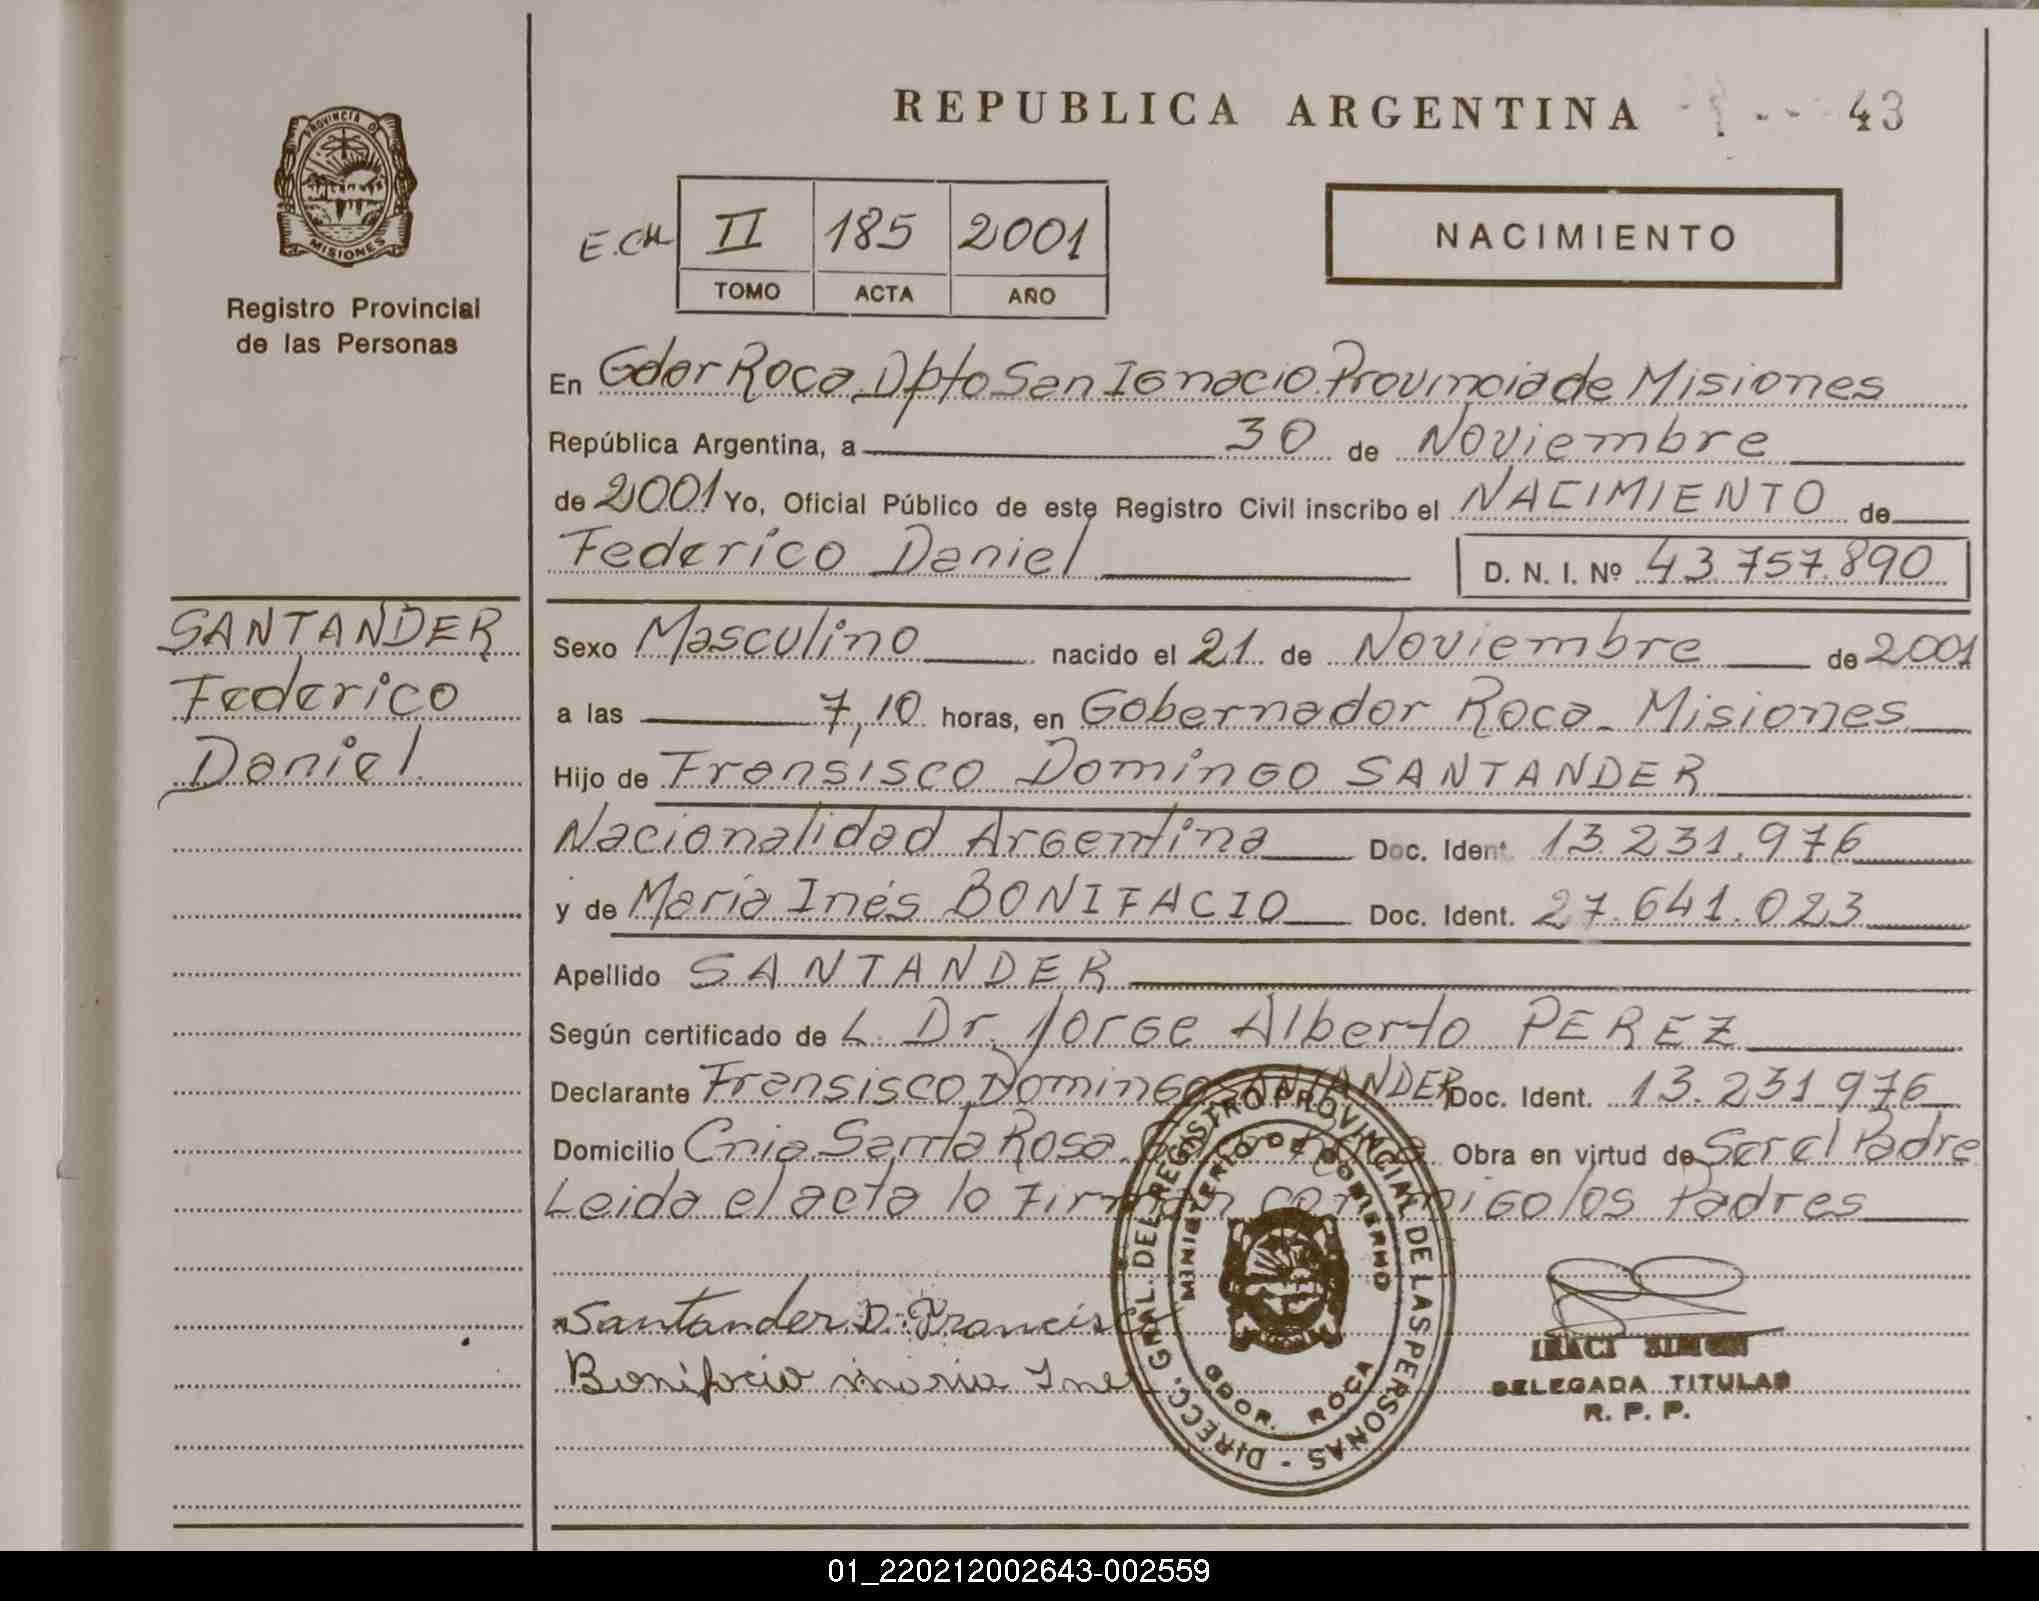 REPUBLICA ARGENTINA 43
PROVINCIA D
MISIONES
Registro Provincial
de las Personas
E.CH II 185 2001
TOMO ACTA AÑO
NACIMIENTO
En Gdor Roca Dpto San Ignacio Provincia de Misiones
República Argentina, a 30 de Noviembre
de 2001 Yo, Oficial Público de este Registro Civil inscribo el NACIMIENTO de
Federico Daniel D. N. I. Nº 43.757.890
SANTANDER
Federico
Daniel
Sexo Masculino nacido el 21 de Noviembre de 2001
a las 7,10 horas, en Gobernador Roca - Misiones
Hijo de Fransisco Domingo SANTANDER
Nacionalidad Argentina Doc. Ident. 13.231.976
y de María Inés BONIFACIO Doc. Ident. 27.641.023
Apellido SANTANDER
Según certificado de L. Dr. Jorge Alberto PEREZ
Declarante Fransisco Domingo SANTANDER Doc. Ident. 13.231.976
Domicilio Cnia Santa Rosa Gdor Roca Obra en virtud de Ser el Padre
Leida el acta lo Firman conmigo los Padres
Santander D. Francisco
Bonifacio maria Ines
DIRECC. GRAL. DEL REGISTRO PROVINCIAL DE LAS PERSONAS -
MINISTERIO DE GOBIERNO
GDOR. ROCA
IRACI SIMON
DELEGADA TITULAR
R. P. P.
01_220212002643-002559